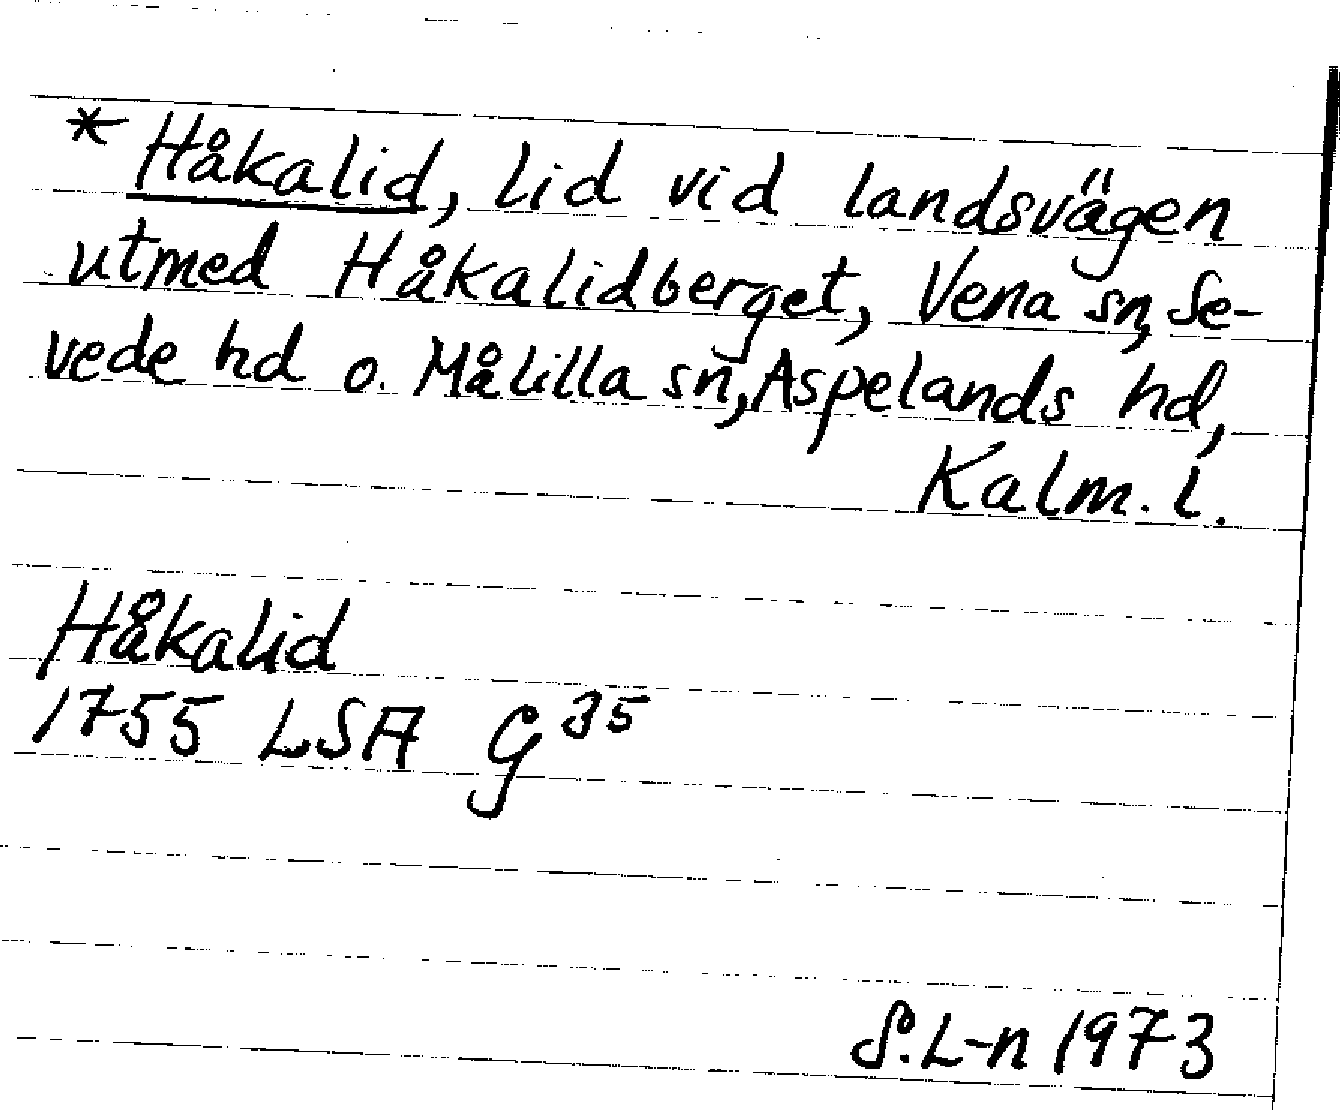 * Håkalid, lid vid landsvägen
utmed Håkalidberget, Vena sn, Se-
vede hd o. Målilla sn, Aspelands hd,
Kalm. l.
Håkalid
1755 LSA G 35
S. L-n 1973